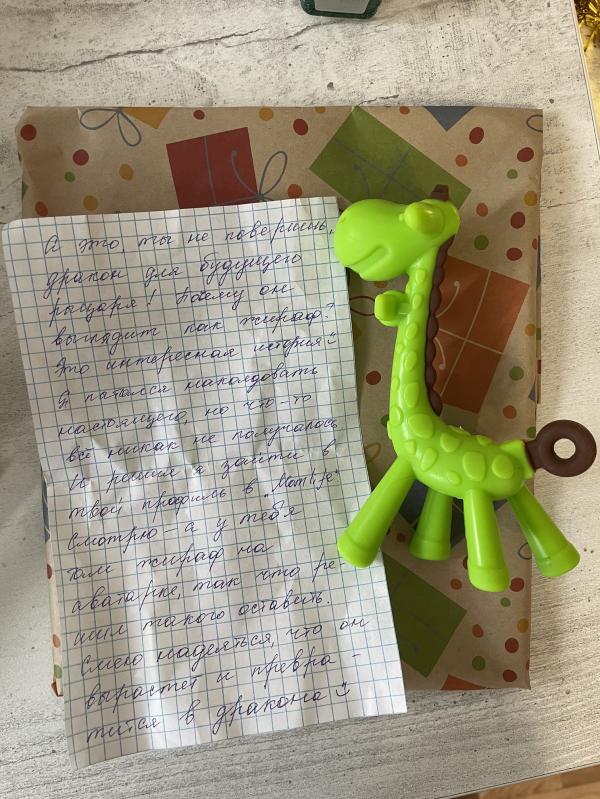 А это, ты не поверишь,
дракон для будущего
рыцаря! Почему он
выглядит как жираф?
Это интересная история:)
Я пытался наколдовать
настоящего, но что-то
всё никак не получалось
И решил я зайти в
твой профиль в "Mom life"
Смотрю - а у тебя
там жираф на
аватарке, так что ре
шил такого оставить.
Смею надеяться, что он
вырастет и превра -
тится в дракона:)